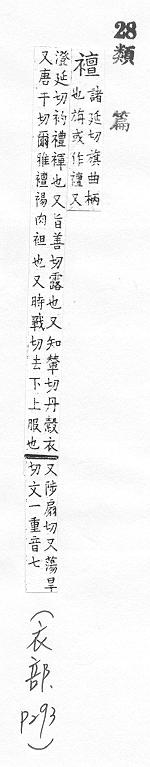 28
類篇
襢諸延切旗曲柄
也旃或作襢又
澄延切衿禮襌也又旨善切露也又知輦切丹縠衣又陟扇切又蕩旱
又唐干切爾雅襢裼肉袒也又時戰切去下上服也切文一重音七
(衣部.P293)